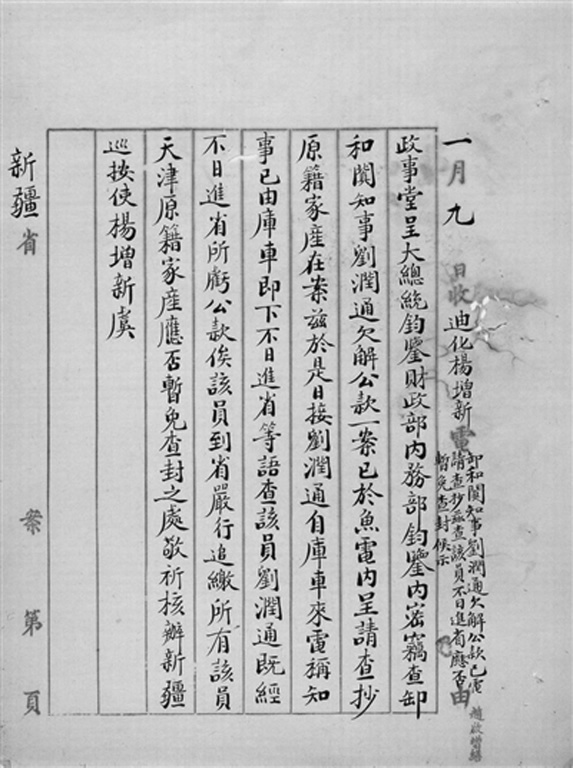 一月九日收迪化楊增新電
卸和闐知事劉潤通欠解公款已電
請查抄茲查該員不日進省應否
暫免查封候示
由
政事堂呈大總統鈞鑒財政部內務部鈞鑒內密竊查卸
和闐知事劉潤通欠解公款一案已於魚電內呈請查抄
原籍家產在案茲於是日接劉潤通自庫車來電稱知
事已由庫車即下不日進省等語查該員劉潤通既經
不日進省所虧公款俟該員到省嚴行追繳所有該員
天津原籍家產應否暫免查封之處敬祈核辦新疆
巡按使楊增新虞
新疆省 案 第 頁